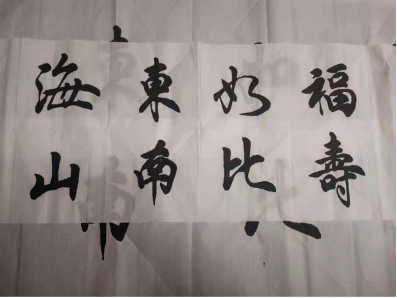 福如東海
壽比南山